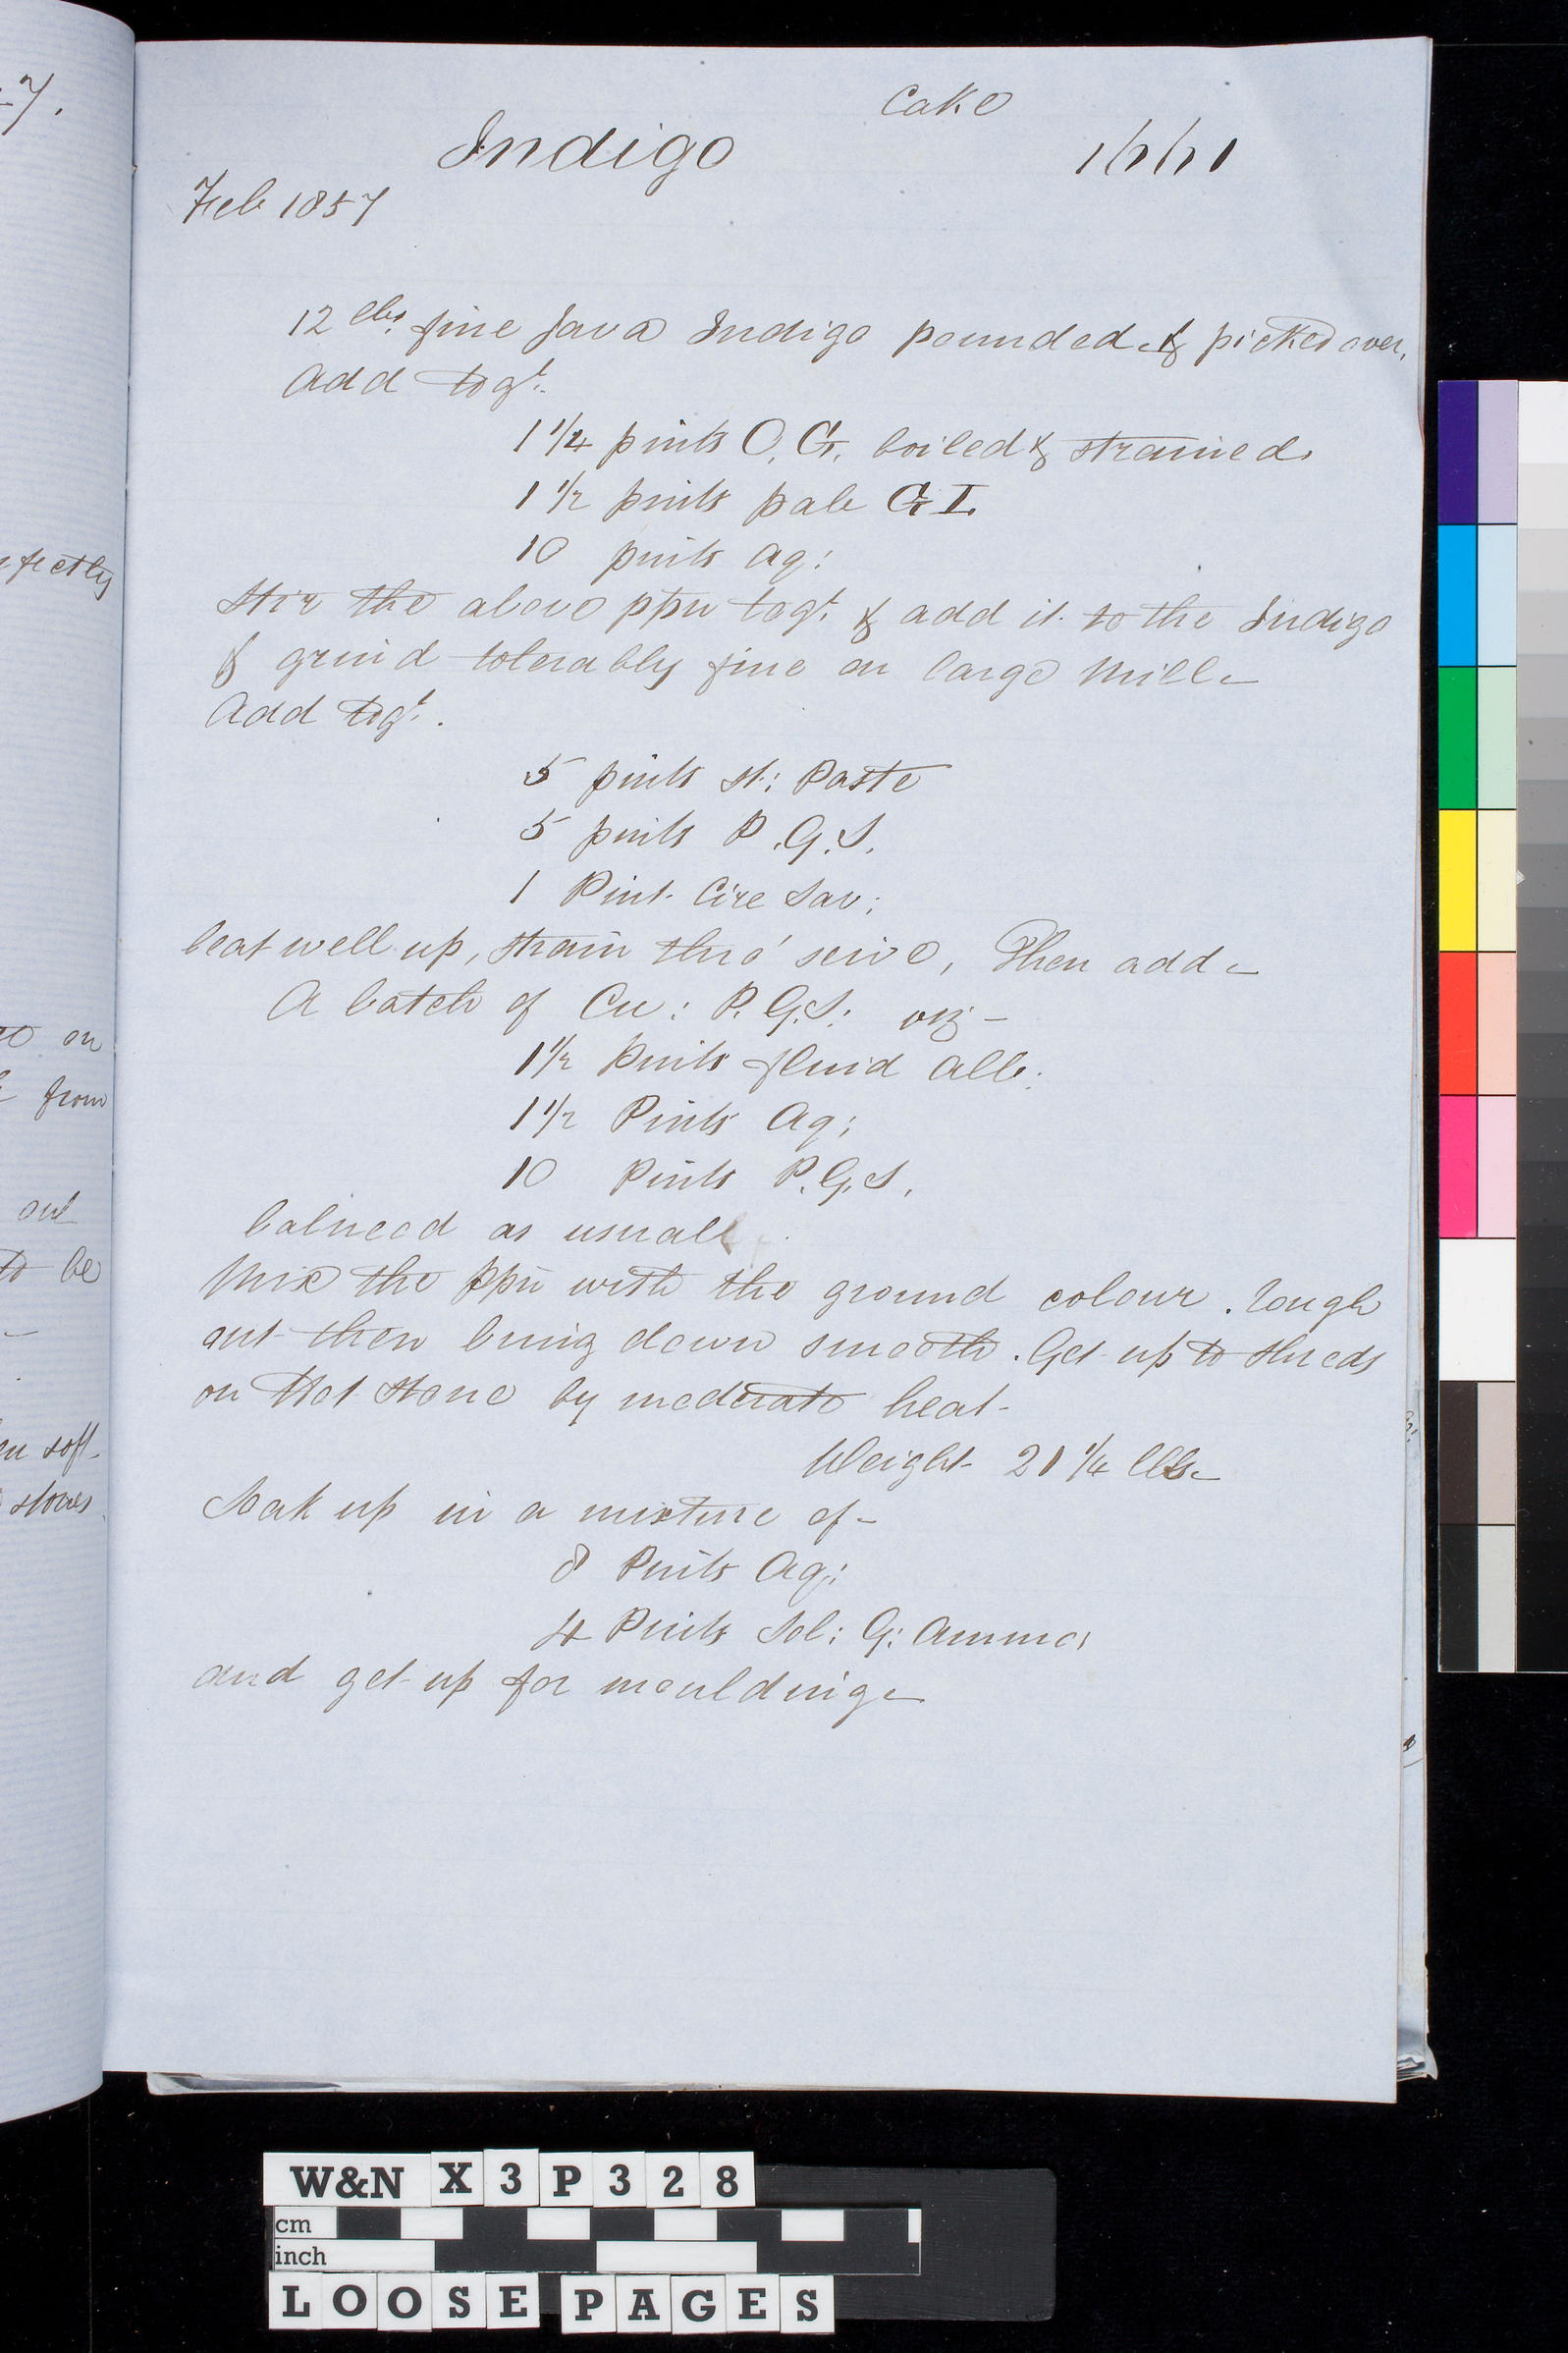 7.
Cake
Indigo
Feb 1857
12 lbs fine Java Indigo pounded & picked over.
Add togt.
1 1/4 pints O.G. boiled & strained.
1 1/2 pints pale G I.
10 pints Aq:
Stir the above ppn togt. & add it to the Indigo
& grind tolerably fine on large Mill –
Add togt.
5 pints st: Paste
5 pints P.G.S.
1 Pint Cire Sav:
beat well up, strain thro' seive, Then add –
A batch of Cu: P.G.S: viz –
1 1/2 Pints fluid Alb:
1 1/2 Pints Aq:
10 Pints P.G.S.
balneod as usual
Mix the ppn with the ground colour. Rough
out then bring down smooth. Get up to shreds
on Hot Stone by moderate heat –
Weight 21 1/4 lbs –
Soak up in a mixture of –
8 Pints Aq:
4 Pints Sol: G: Ammo:
and get up for moulding –
fectly
on
from
out
to be
soft
stones
W&N X3P328
cm
inch
LOOSE PAGES